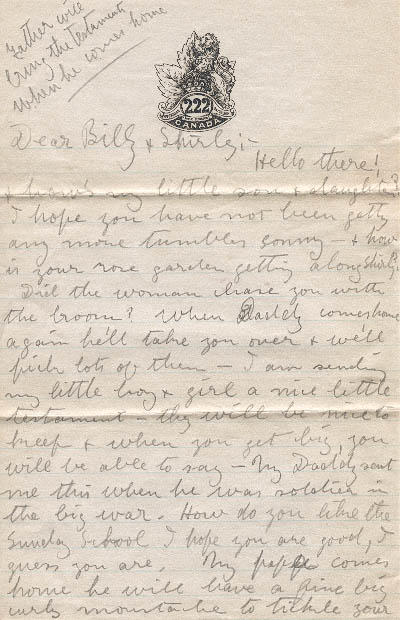 Father will
bring the testaments
when he comes home
222
CANADA
Dear Billy & Shirley:-
Hello there!
& how's my little son & daughter?
I hope you have not been getty
any more tumbles sonny - & how
is your rose garden getting along Shirly?
Did the woman chase you with
the broom? When Daddy comes home
again he'll take you over & we'll
pick lots of them - I am sending
my little boy & girl a nice little
testament they will be nice to
keep & when you get big, you
will be able to say - My Daddy sent
me this when he was soldier in
the big war. How do you like the
Sunday School I hope you are good, I
guess you are. My papa comes
home he will have a fine big
curly moustache to tickle your